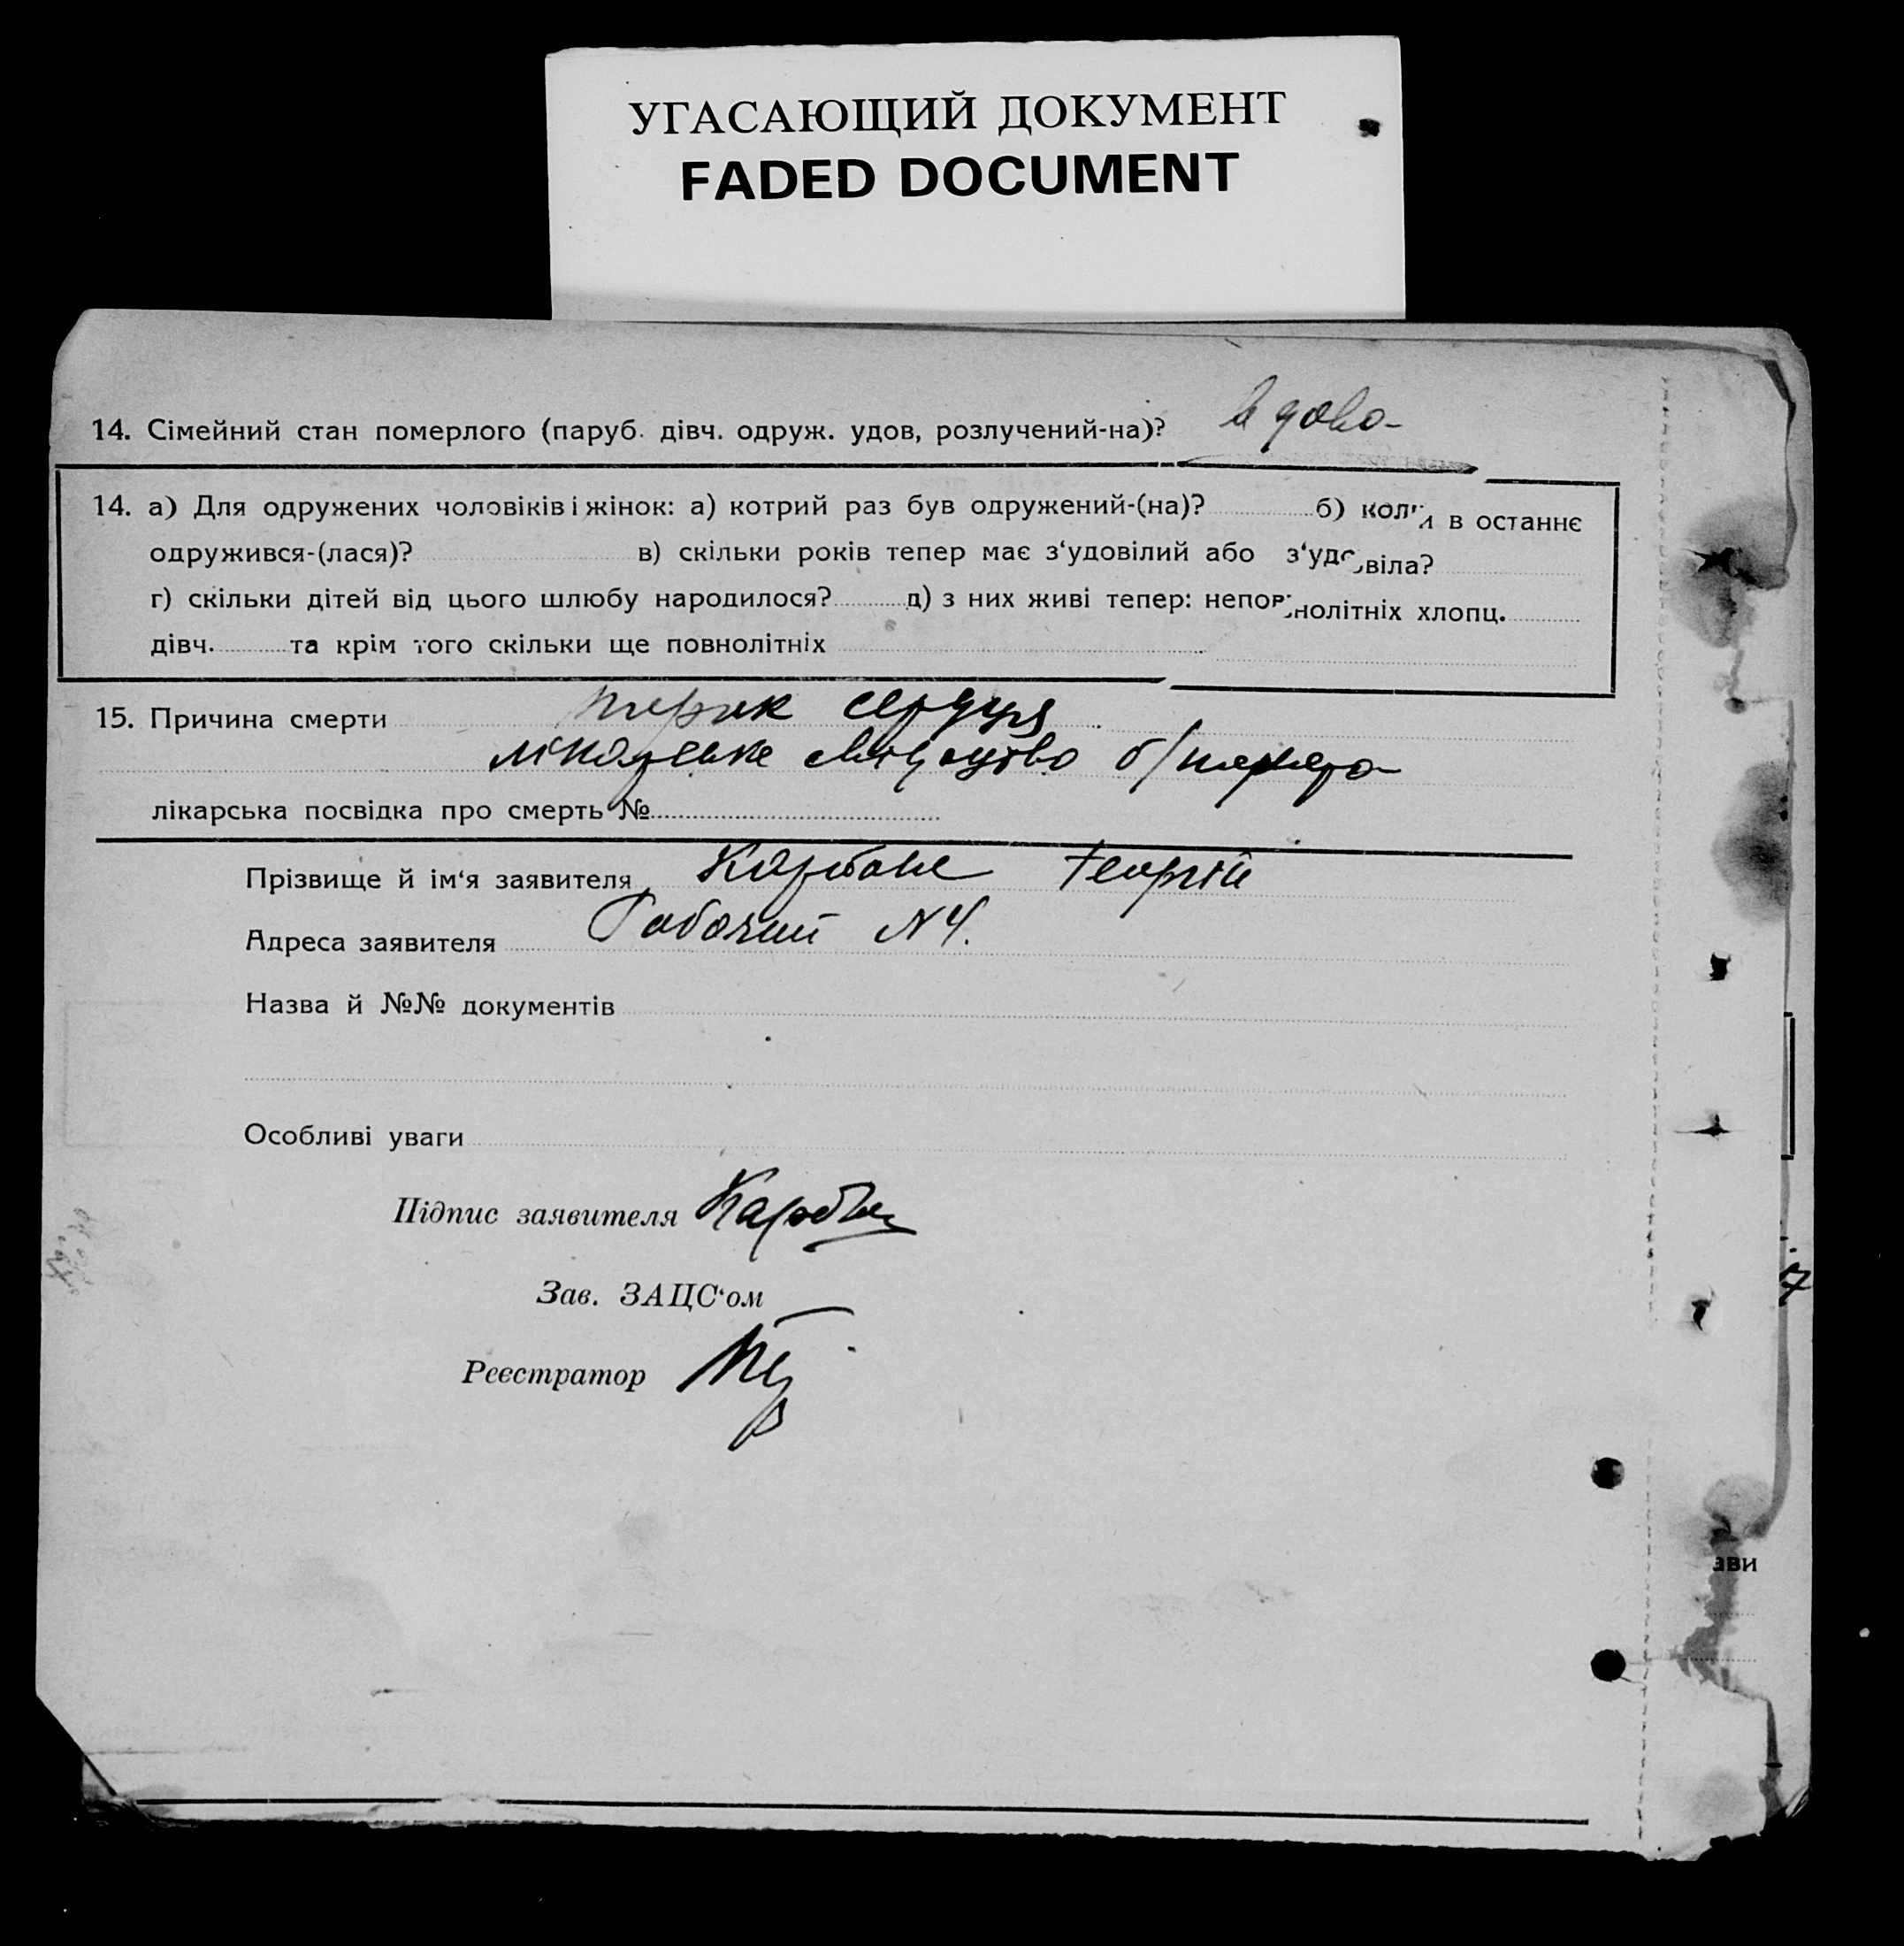 УГАСАЮЩИЙ ДОКУМЕНТ
FADED DOCUMENT
14. Сімейний стан померлого (паруб. дівч. одруж. удов, розлучений-на)? вдова
14. а) Для одружених чоловіків і жінок: а) котрий раз був одружений-(на)? б) коли в останнє
одружився-(лася)? в) скільки років тепер має з‘удовілий або з‘удовіла?
г) скільки дітей від цього шлюбу народилося? д) з них живі тепер: неповнолітніх хлопц.
дівч. та крім того скільки ще повнолітніх
15. Причина смерти серця
б/номера
лікарська посвідка про смерть №
Прізвище й ім‘я заявителя Георгій
Адреса заявителя Рабочий N4.
Назва й №№ документів
Особливі уваги
Підпис заявителя
Зав. ЗАЦС‘ом
Реєстратор
7
ави